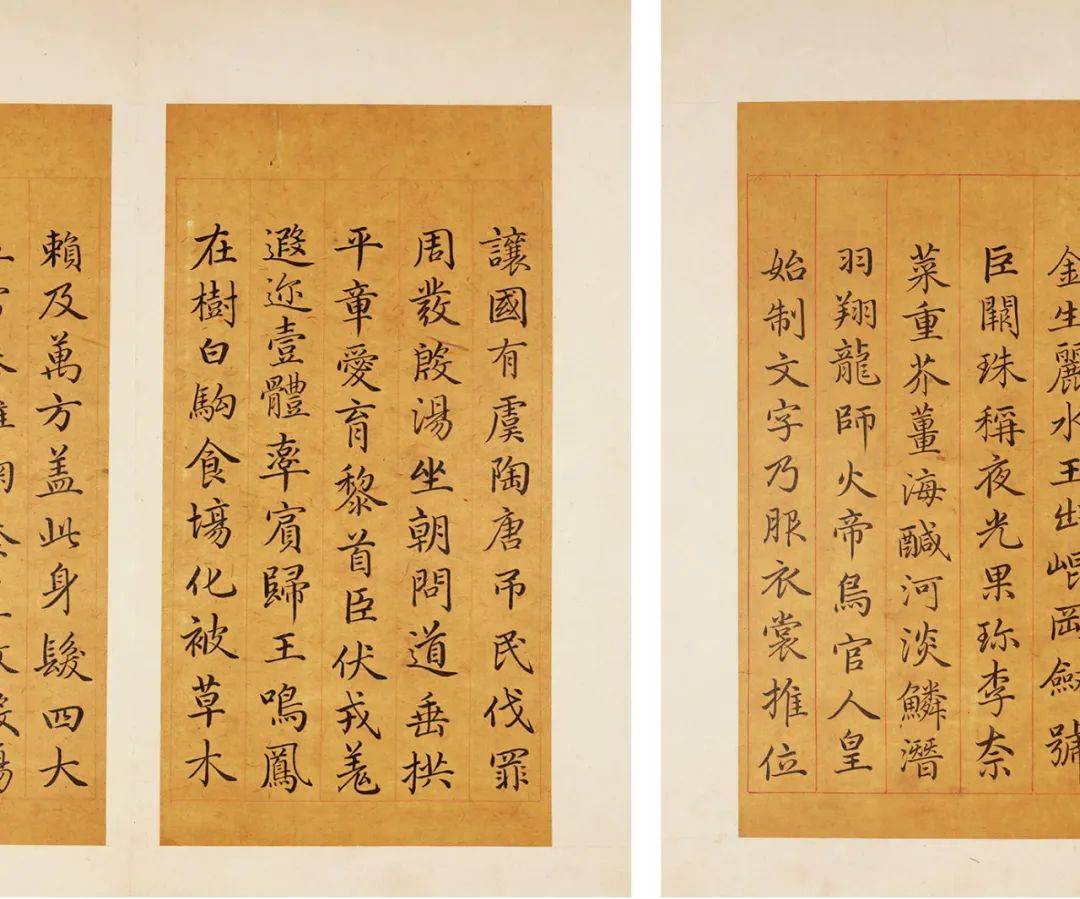 金生麗水玉出崐岡劔號
巨闕珠稱夜光果珎李柰
菜重芥薑海醎河淡鱗潛
羽翔龍師火帝鳥官人皇
始制文字乃服衣裳推位
讓國有虞陶唐吊民伐罪
周發殷湯坐朝問道垂拱
平章愛育黎首臣伏戎羌
遐迩壹體率賓歸王鳴鳳
在樹白駒食塲化被草木
賴及萬方盖此身髮四大